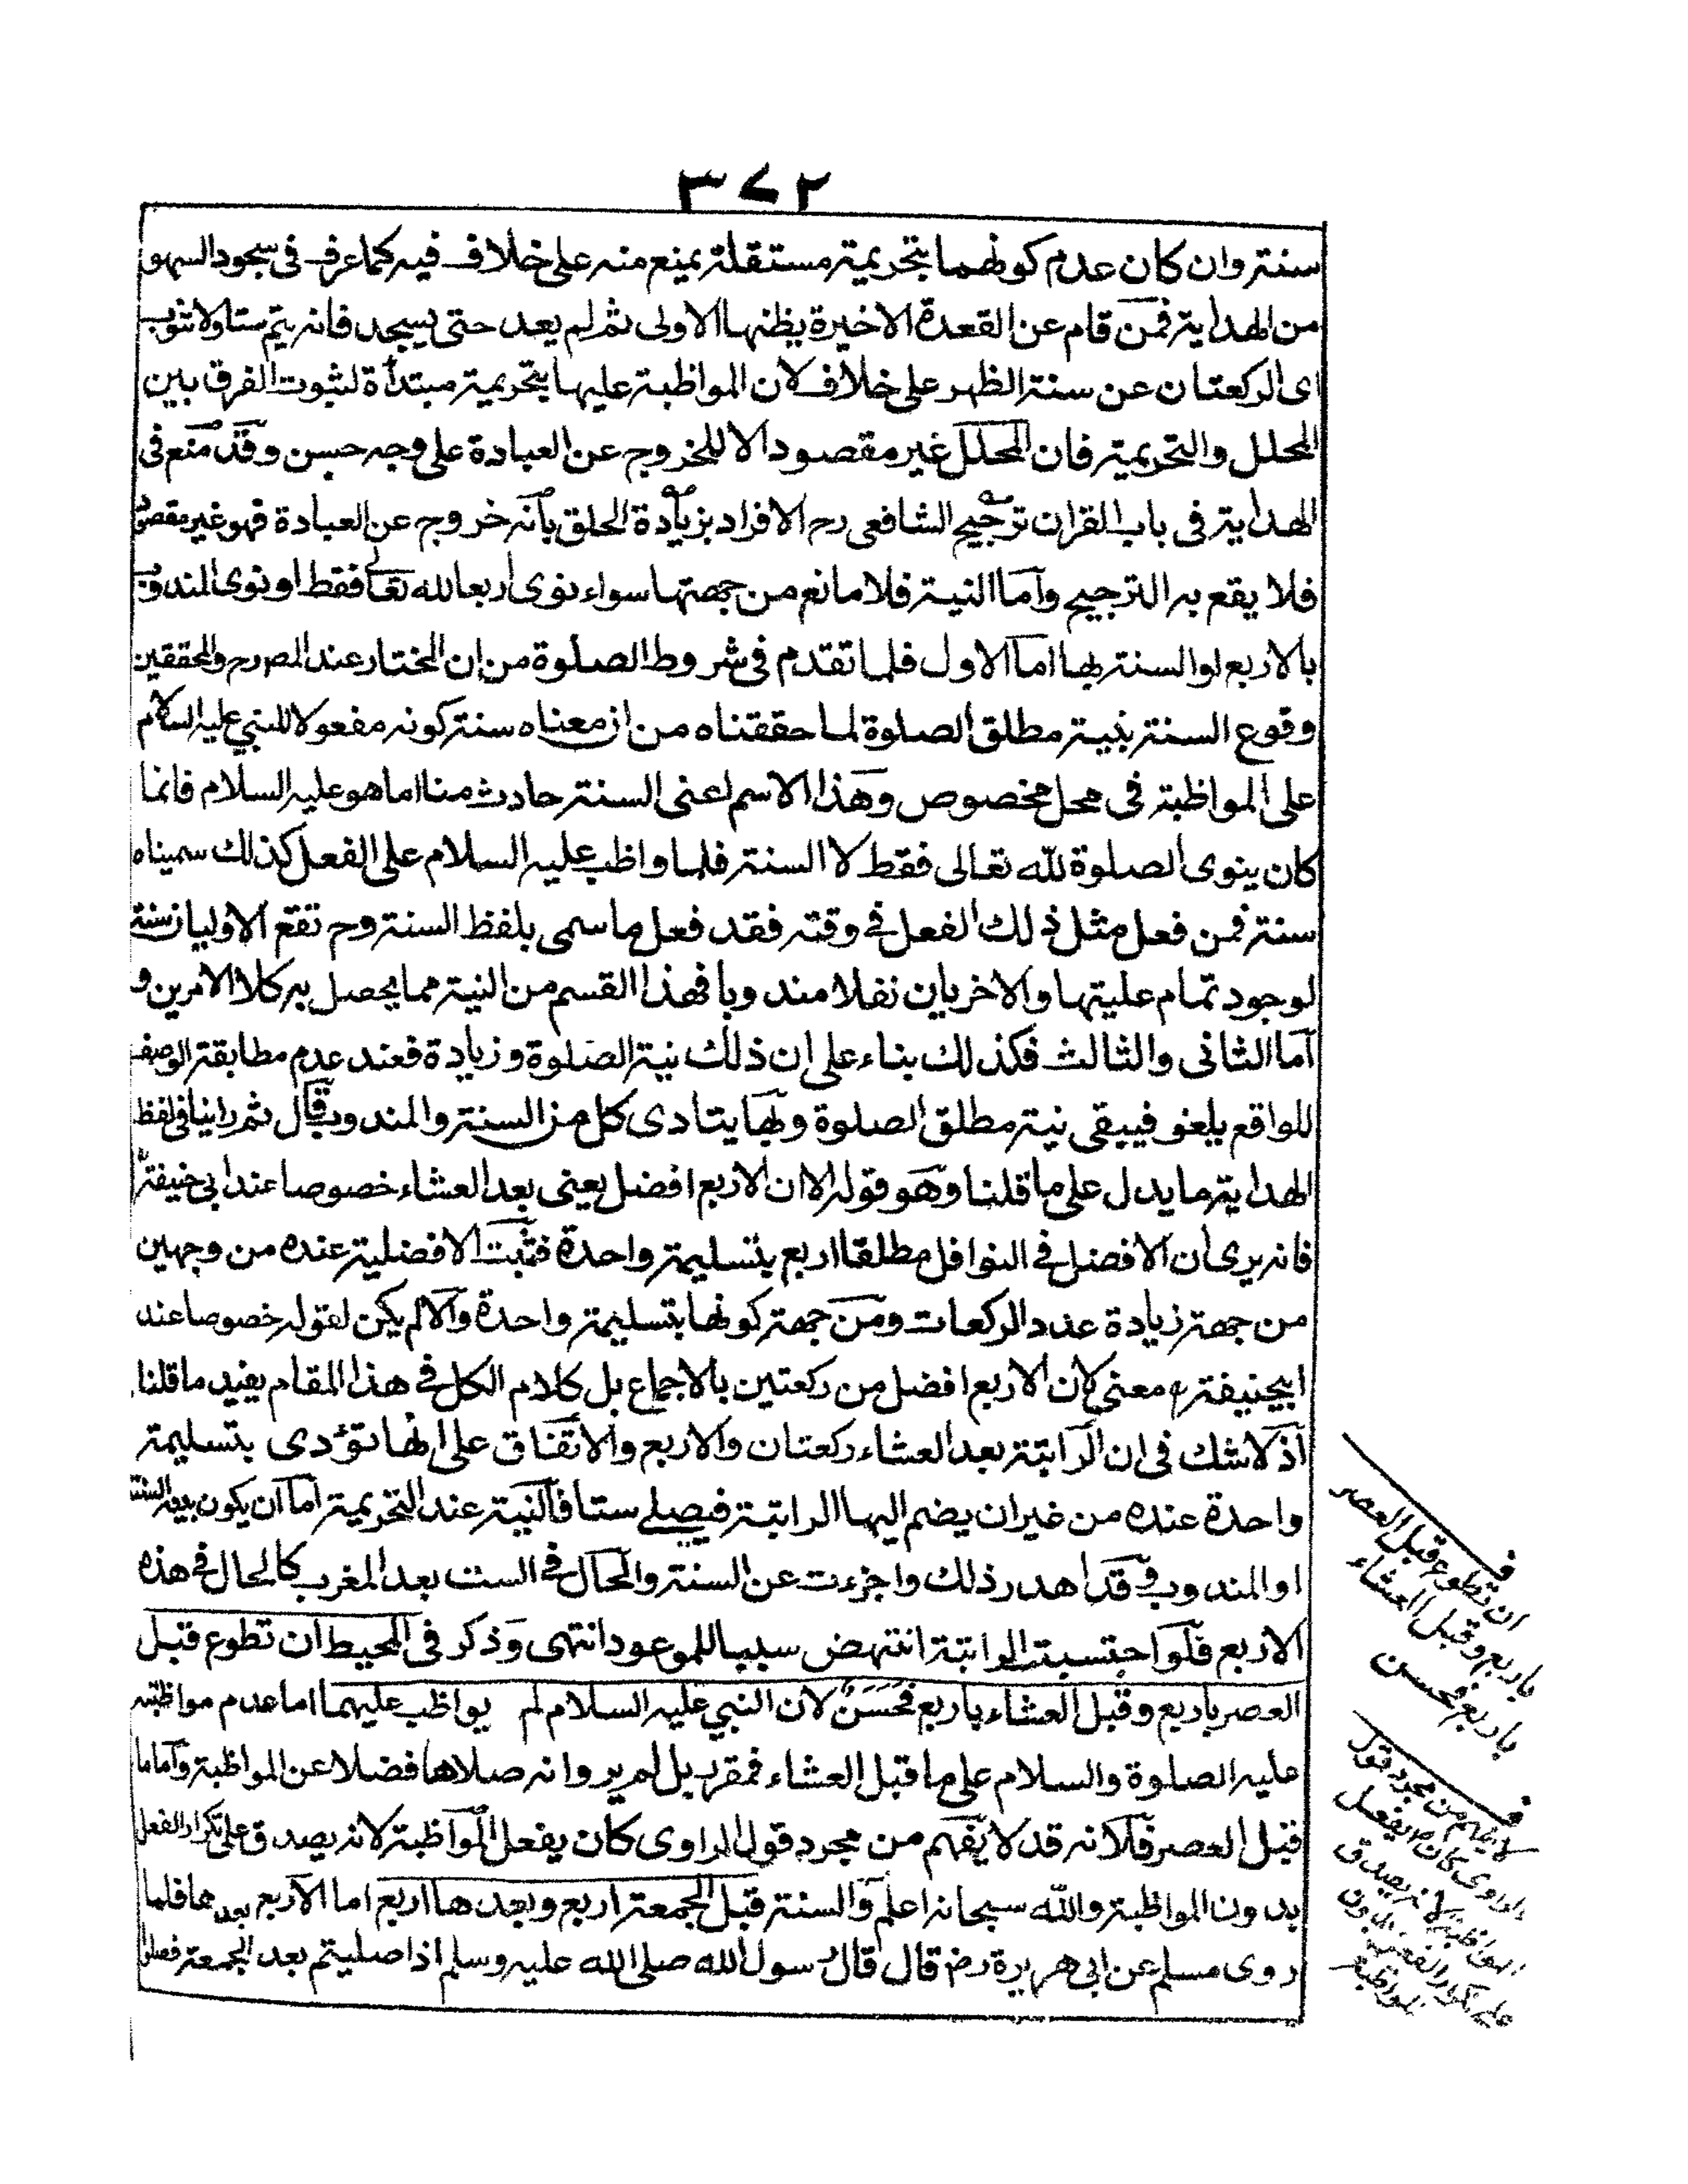 ٣٧٢
سنة وان كان عدم كونهما بتحريمة مستقلة يمنع منه على خلاف فيه كما عرف فى سجود السهو
من الهداية فمن قام عن القعدة الاخيرة يظنها الاولى ثم لم يعد حتى يسجد فانه يتم ستا ولا تنوب
اى الركعتان عن سنة الظهر على خلاف لان المواظبة عليها بتحريمة مبتدأة لثبوت الفرق بين
المحلل والتحريمة فان المحلل غير مقصود الا للخروج عن العبادة على وجه حسن وقد منع فى
الهداية فى باب القران ترجيح الشافعى رح الافراد بزيادة الحلق بانه خروج عن العبادة فهو غير مقصود
فلا يقع به الترجيح واما النية فلا مانع من جهتها سواء نوى اربعا لله تعالے فقط او نوى المندوب
بالاربع او السنة بها اما الاول فلما تقدم فى شروط الصلوة من ان المختار عند المص رح والمحققين
وقوع السنة بنية مطلق الصلوة لما حققناه من ان معناه سنة كونه مفعولا للنبي عليه السلام
على المواظبة فى محل مخصوص وهذا الاسم اعنى السنة حادث منا اما هو عليه السلام فانما
كان ينوى الصلوة لله تعالى فقط لا السنة فلما واظب عليه السلام على الفعل كذلك سميناه
سنة فمن فعل مثل ذلك الفعل فے وقته فقد فعل ما سمى بلفظ السنة وح تقع الاوليان سنة
لوجود تمام عليتها والاخريان نفلا مندوبا فهذا القسم من النية مما يحصل به كلا الامرين و
اما الثانى والثالث فكذلك بناء على ان ذلك نية الصلوة وزيادة فعند عدم مطابقة الوصف
للواقع يلغو فيبقى نية مطلق الصلوة وبها يتادى كل من السنة والمندوب قال ثم راينا فى لفظ
الهداية ما يدل على ما قلنا وهو قوله الا ان الاربع افضل يعنى بعد العشاء خصوصا عند ابى حنيفة رح
فانه يرى ان الافضل فے النوافل مطلقا اربع بتسليمة واحدة فثبت الافضلية عنده من وجهين
من جهة زيادة عدد الركعات ومن جهة كونها بتسليمة واحدة والا لم يكن لقوله خصوصا عند
ابيحنيفة رح معنى لان الاربع افضل من ركعتين بالاجماع بل كلام الكل فے هذا المقام يفيد ما قلنا
اذ لا شك فى ان الراتبة بعد العشاء ركعتان والاربع والاتفاق على انها تؤدى بتسليمة
واحدة عنده من غير ان يضم اليها الراتبة فيصلے ستا فالنية عند التحريمة اما ان يكون بنية السنة
او المندوب فے قد اهدر ذلك واجزءت عن السنة والحال فے الست بعد المغرب كالحال فے هذه
الاربع فلو احتسبت الراتبة انتهض سببا للموعود انتهى وذكر فى المحيط ان تطوع قبل
العصر باربع وقبل العشاء باربع فحسن لان النبي عليه السلام لم يواظب عليهما اما عدم مواظبته
عليه الصلوة والسلام على ما قبل العشاء فمقرر بل لم يرو انه صلاها فضلا عن المواظبة واما ما
قبل العصر فلانه قد لا يفهم من مجرد قول الراوى كان يفعل المواظبة لانه يصدق على تكرار الفعل
بدون المواظبة والله سبحانه اعلم والسنة قبل الجمعة اربع وبعدها اربع اما الاربع بعدها فلما
روى مسلم عن ابى هريرة رض قال قال رسول الله صلى الله عليه وسلم اذا صليتم بعد الجمعة فصلوا
ف
ان تطوع قبل العصر
باربع وقبل العشاء
باربع فحسن
ف
لا يفهم من مجرد قول
الراوى كان يفعل
المواظبة لانه يصدق
على تكرار الفعل بدون
المواظبة